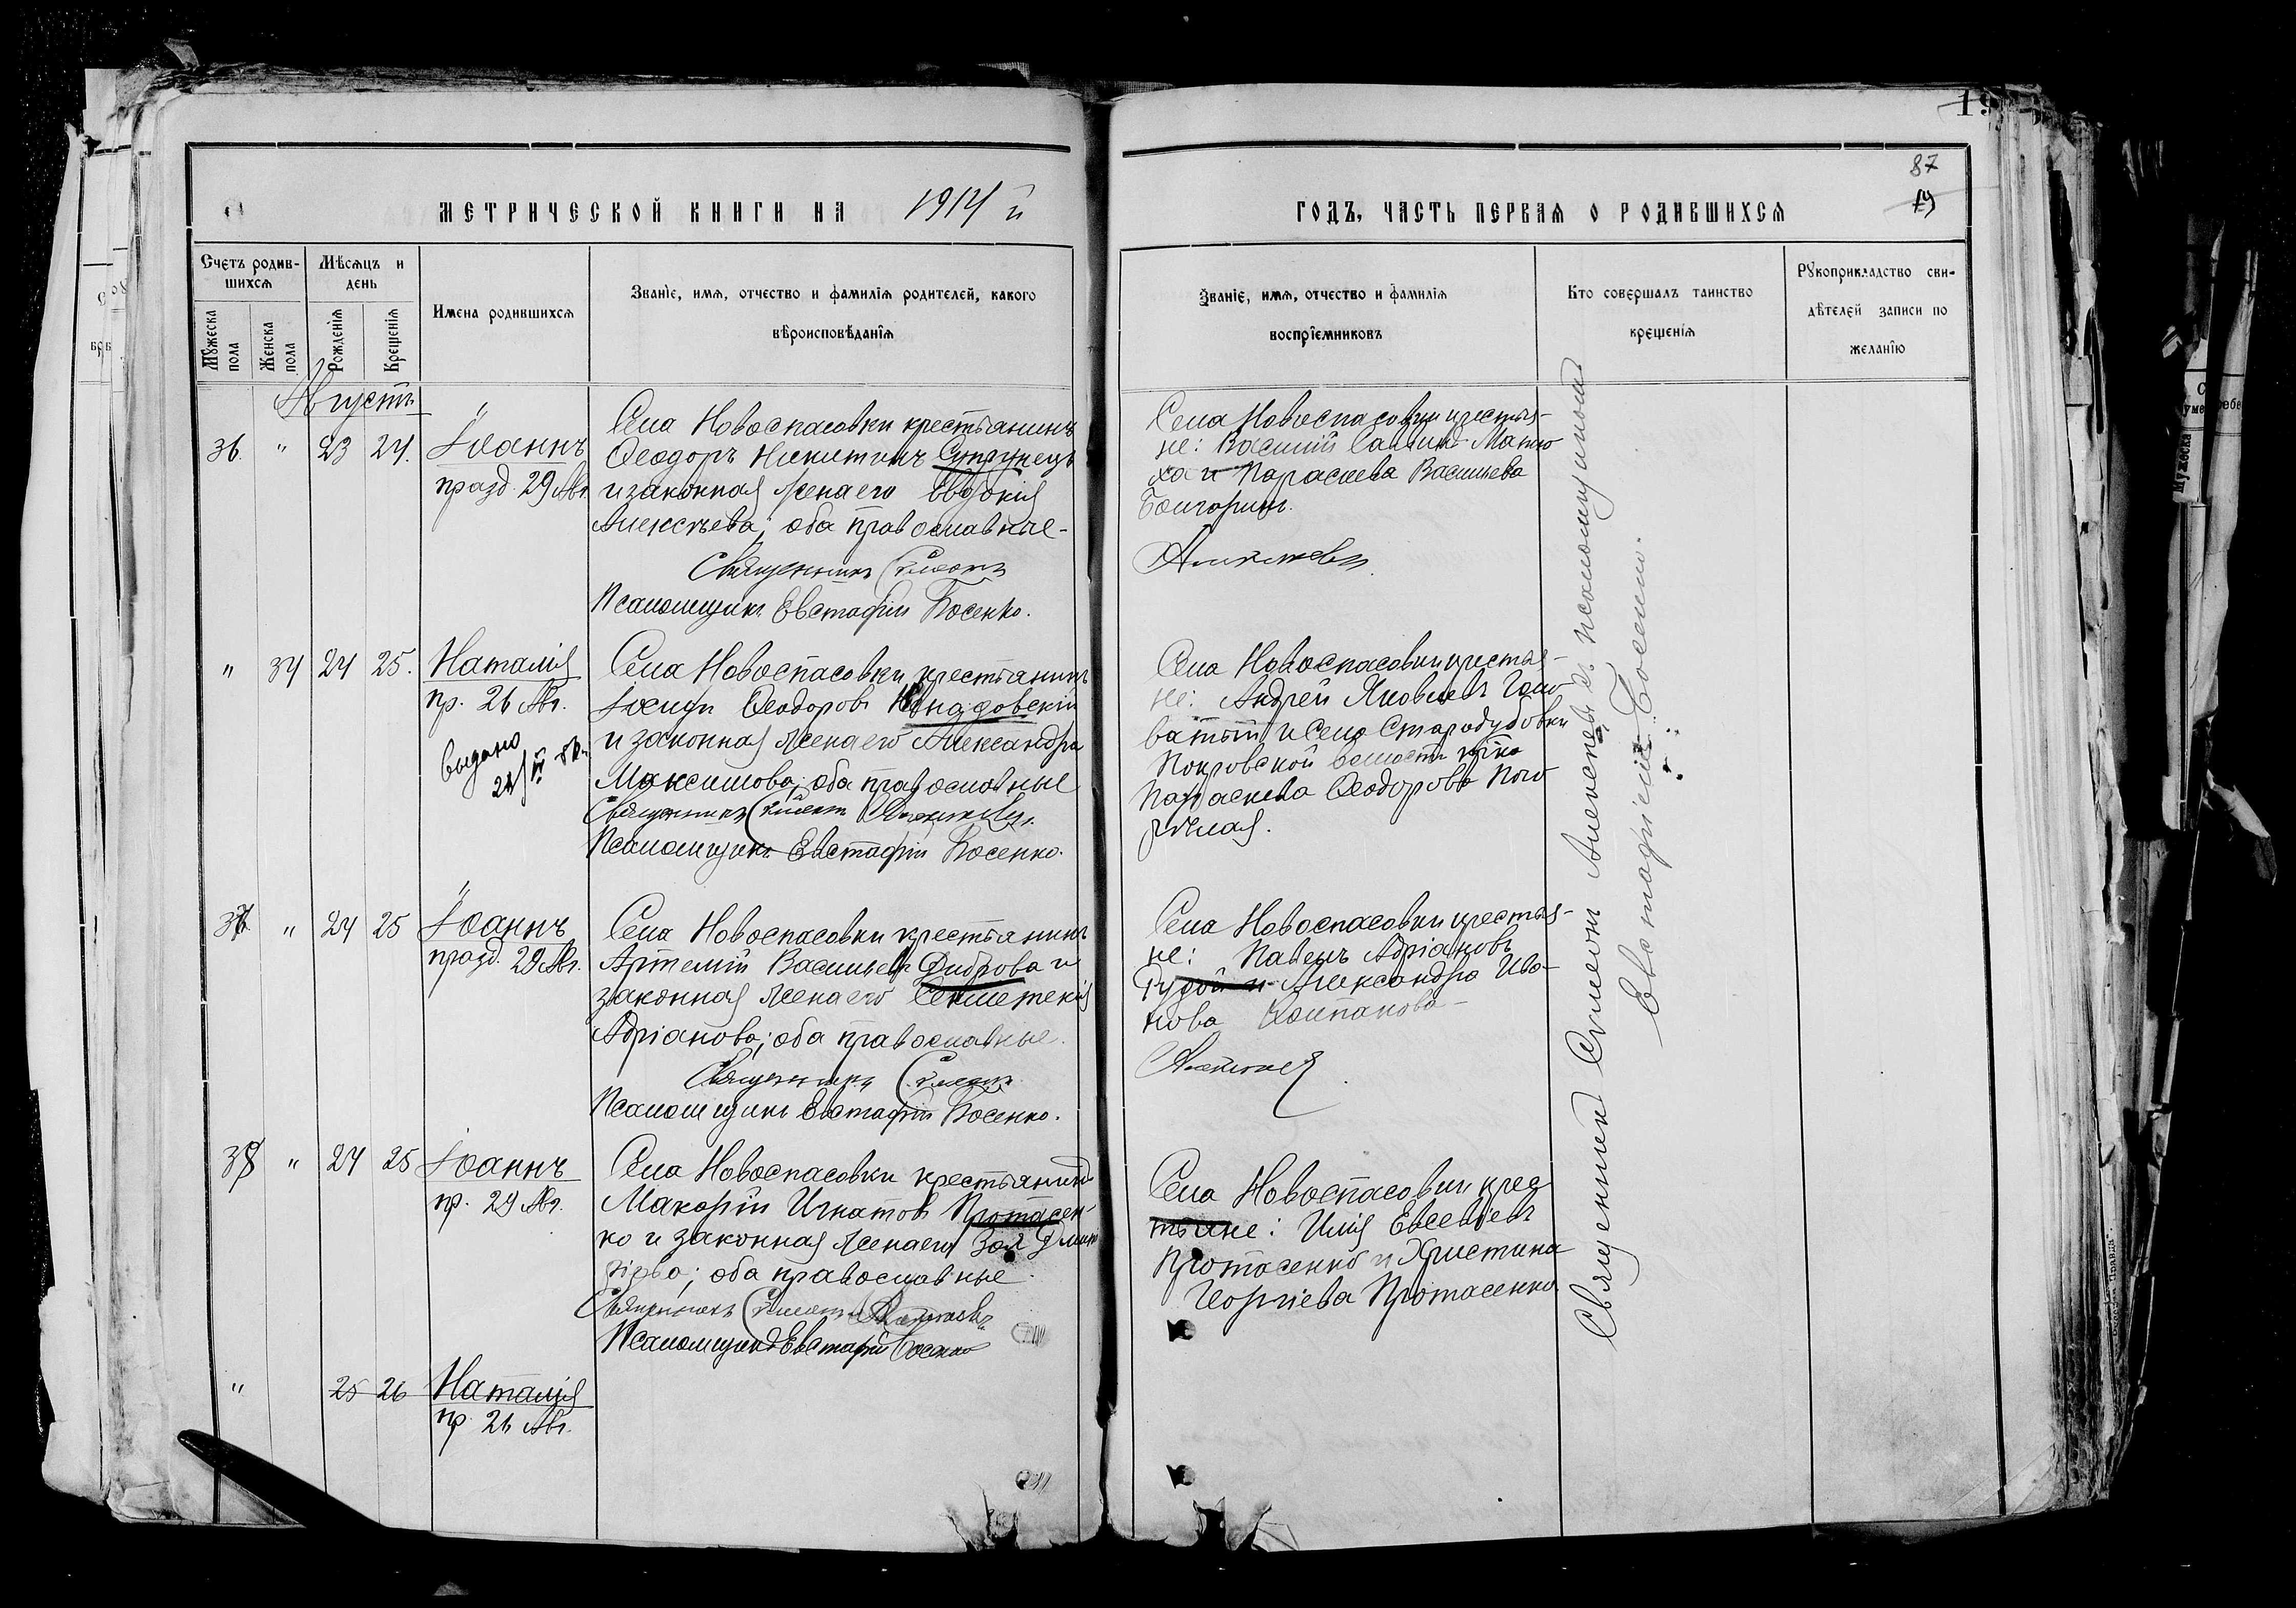 19
87
19
МЕТРИЧЕСКОЙ КНИГИ НА 1914 й
ГОДЪ, ЧАСТЬ ПЕРВАЯ О РОДИВШИХСЯ
Счетъ родив-
шихся
Мѣсяцъ и
день
Мужеска
пола
Женска
пола
Рожденія
Крещенія
Имена родившихся
Званіе, имя, отчество и фамилія родителей, какого
вѣроисповѣданія
Званіе, имя, отчество и фамилія
воспріемниковъ
Кто совершалъ таинство
крещенія
Рукоприкладство сви-
дѣтелей записи по
желанію
Августъ
36. " 23 24. Іоаннъ
празд. 29 Авг.
Села Новоспасовки крестьянинъ
Ѳеодоръ Никитинъ Супрунецъ
и законная жена его Евдокія
Алексѣева; оба православные-
Священникъ Симеонъ
Псаломщикъ Евстафій Босенко.
Села Новоспасовки крестья-
не: Василій Саввинъ
и Параскева Васильева
Алексѣевъ
" 34 24 25. Наталія
пр. 26 Авг.
выдано
Села Новоспасовки крестьянинъ
Іосифъ Ѳеодоровъ
и законная жена его Александра
Максимова; оба православные
Священникъ Симеонъ Алексѣевъ.
Псаломщикъ Евстафій Босенко.
Села Новоспасовки крестья-
не: Андрей Яковлевъ Голо
ватый и села Стародубовки
Покровской волости
Параскева Ѳеодорова
37 " 24 25 Іоаннъ
празд. 29 Авг.
Села Новоспасовки крестьянинъ
Артемій Васильевъ Диброва и
законная жена его
Адріанова; оба православные.
Священникъ Симеонъ
Псаломщикъ Евстафій Босенко.
Села Новоспасовки крестья-
не: Павелъ Адріановъ
и Александра Ива-
нова
Алексѣевъ
38 " 24 25 Іоаннъ
пр. 29 Авг.
Села Новоспасовки крестьянинъ
Макарій Игнатовъ Протасен-
ко и законная жена его
оба православные.
Священникъ Симеонъ Алексѣевъ
Псаломщикъ Евстафій Босенко
Села Новоспасовки крес
тьяне: Илія Евсевіевъ
Протасенко и Христина
Георгіева Протасенко
" 25 26 Наталія
пр. 26 Авг.
Священникъ Симеонъ Алексѣевъ съ псаломщикомъ
Евстафіемъ Босенко.